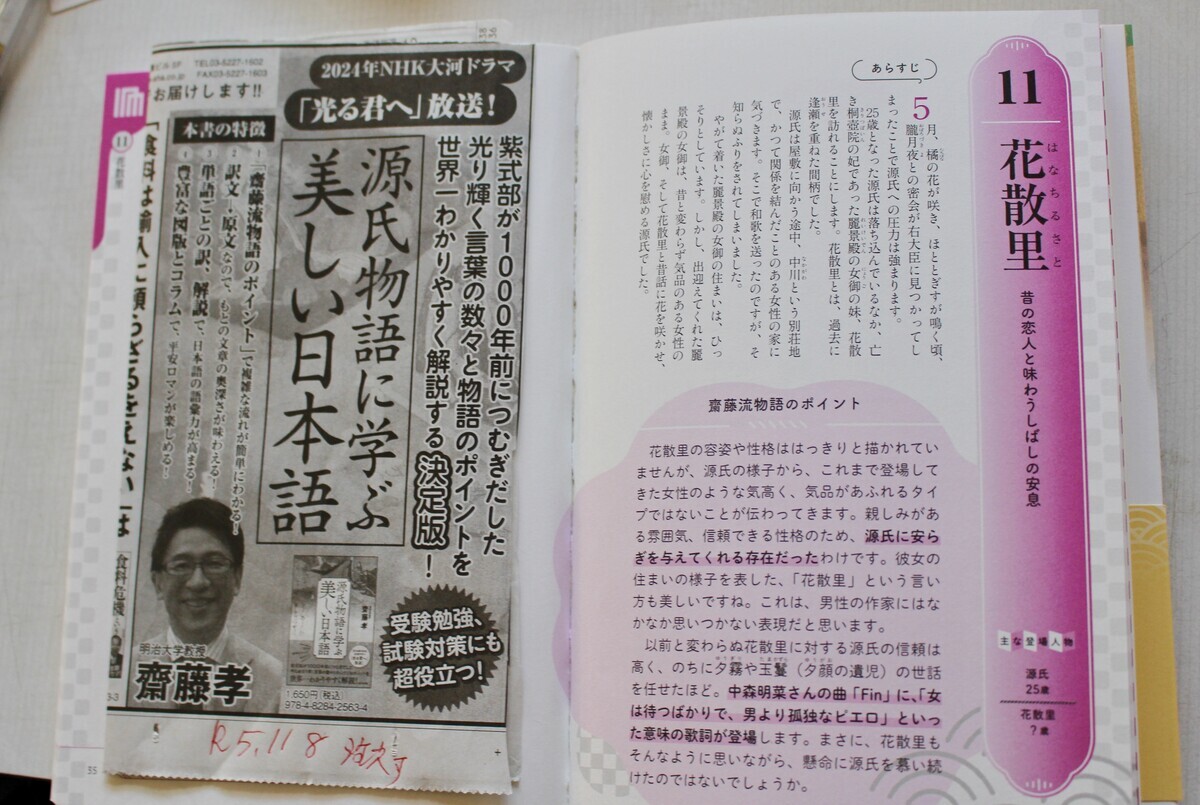 11
花散里
はなちるさと
昔の恋人と味わうしばしの安息
主な登場人物
源氏
25歳
花散里
?歳
あらすじ
5月、橘の花が咲き、ほととぎすが鳴く頃、
朧月夜との密会が右大臣に見つかってし
まったことで源氏への圧力は強まります。
25歳となった源氏は落ち込んでいるなか、亡
き桐壺院の妃であった麗景殿の女御の妹、花散
里を訪れることにします。花散里とは、過去に
逢瀬を重ねた間柄でした。
源氏は屋敷に向かう途中、中川という別荘地
で、かつて関係を結んだことのある女性の家に
気づきます。そこで和歌を送ったのですが、そ
知らぬふりをされてしまいました。
やがて着いた麗景殿の女御の住まいは、ひっ
そりとしています。しかし、出迎えてくれた麗
景殿の女御は、昔と変わらず気品のある女性の
まま。女御、そして花散里と昔話に花を咲かせ、
懐かしさに心を慰める源氏でした。
齋藤流物語のポイント
花散里の容姿や性格ははっきりと描かれてい
ませんが、源氏の様子から、これまで登場して
きた女性のような気高く、気品があふれるタイ
プではないことが伝わってきます。親しみがあ
る雰囲気、信頼できる性格のため、源氏に安ら
ぎを与えてくれる存在だったわけです。彼女の
住まいの様子を表した、「花散里」という言い
方も美しいですね。これは、男性の作家にはな
かなか思いつかない表現だと思います。
以前と変わらぬ花散里に対する源氏の信頼は
高く、のちに夕霧や玉鬘（夕顔の遺児）の世話
を任せたほど。中森明菜さんの曲「Fin」に、「女
は待つばかりで、男より孤独なピエロ」といっ
た意味の歌詞が登場します。まさに、花散里も
そんなように思いながら、懸命に源氏を慕い続
けたのではないでしょうか。
TEL03-5227-1602
FAX03-5227-1603
お届けします!!
2024年NHK大河ドラマ
「光る君へ」放送!
紫式部が1000年前につむぎだした
光り輝く言葉の数々と物語のポイントを
世界一わかりやすく解説する決定版!
源氏物語に学ぶ
美しい日本語
本書の特徴
1「齋藤流物語のポイント」で複雑な流れが簡単にわかる!
2 訳文+原文なので、もとの文章の奥深さが味わえる!
3 単語ごとの訳、解説で、日本語の語彙力が高まる!
4 豊富な図版とコラムで、平安ロマンが楽しめる!
受験勉強、
試験対策にも
超役立つ!
源氏物語に学ぶ
美しい日本語
齋藤孝
明治大学教授
齋藤孝
1,650円(税込)
978-4-8284-2563-4
「食料は輸入に頼らざるをえない」は
食料危機
11
花散里
35
R5.11.8